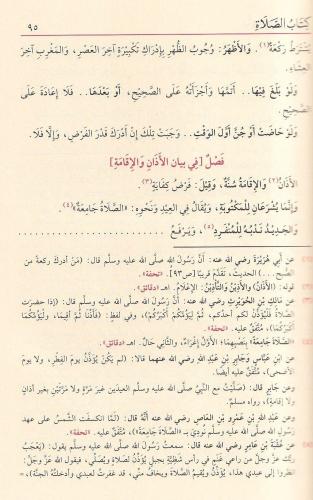 كِتَابُ الصَّلَاةِ ٩٥
يُشْتَرَطُ رَكْعَةٌ(١). وَالأَظْهَرُ: وُجُوبُ الظُّهْرِ بِإِدْرَاكِ تَكْبِيرَةٍ آخِرَ العَصْرِ، وَالمَغْرِبِ آخِرَ
العِشَاءِ.
وَلَوْ بَلَغَ فِيهَا.. أَتَمَّهَا وَأَجْزَأَتْهُ عَلَى الصَّحِيحِ، أَوْ بَعْدَهَا.. فَلَا إِعَادَةَ عَلَى
الصَّحِيحِ.
وَلَوْ حَاضَتْ أَوْ جُنَّ أَوَّلَ الوَقْتِ.. وَجَبَتْ تِلْكَ إِنْ أَدْرَكَ قَدْرَ الفَرْضِ، وَإِلَّا فَلَا.
فَصْلٌ [فِي بَيَانِ الأَذَانِ وَالإِقَامَةِ]
الأَذَانُ(٢) وَالإِقَامَةُ سُنَّةٌ، وَقِيلَ: فَرْضُ كِفَايَةٍ(٣).
وَإِنَّمَا يُشْرَعَانِ لِلْمَكْتُوبَةِ، وَيُقَالُ فِي العِيدِ وَنَحْوِهِ: «الصَّلَاةَ جَامِعَةً»(٤).
وَالجَدِيدُ نَدْبُهُ لِلْمُنْفَرِدِ(٥)، وَيَرْفَعُ ..........
(١) عن أبي هُرَيْرَةَ رضي الله عنه: أَنَّ رَسُولَ اللهِ صلى الله عليه وسلم قال: (مَن أدركَ ركعةً من
الصُّبحِ ...) الحديث، تَقَدَّمَ قريبًا [ص٩٣]. اهـ «تحفة».
(٢) قوله: (الأَذَانُ) وَالأَذِينُ وَالتَّأْذِينُ: الإِعْلَامُ. اهـ «دقائق».
(٣) عن مَالِكِ بْنِ الحُوَيْرِثِ رضي الله عنه: أَنَّ رسولَ الله صلى الله عليه وسلم قال: (إذا حضرَتِ
الصَّلَاةُ فَلْيُؤَذِّنْ لكم أحدُكم، ثم لْيَؤُمَّكُمْ أَكْبَرُكُمْ)، وفي لفظٍ: (فَأَذِّنَا ثُمَّ أَقِيمَا، وَلْيَؤُمَّكُمَا
أَكْبَرُكُمَا)، مُتَّفَقٌ عليه. اهـ «تحفة».
(٤) (الصَّلَاةَ جَامِعَةً» بِنَصْبِهِمَا؛ الأَوَّلُ إِغْرَاءٌ، وَالثَّانِي حَالٌ. اهـ «دقائق».
عن ابْنِ عَبَّاسٍ وَجَابِرِ بْنِ عَبْدِ اللهِ رضي الله عنهما قالا: (لم يَكُنْ يُؤَذَّنُ يومَ الفِطْرِ، ولا يومَ
الأضحى)، مُتَّفَقٌ عليه. أيضًا.
وعن جَابِرٍ قال: (صَلَّيْتُ مع النَّبِيِّ صلى الله عليه وسلم العيدَينِ غيرَ مَرَّةٍ ولا مَرَّتَيْنِ بغيرِ أذانٍ
ولا إقامةٍ)، رواه مسلم.
وعن عَبْدِ اللهِ بْنِ عَمْرِو بْنِ العَاصِ رضي الله عنه أنَّهُ قال: (لَمَّا انكسفَتِ الشَّمسُ على عهدِ
رسولِ الله صلى الله عليه وسلم نُودِيَ بـ«الصَّلَاةَ جَامِعَةً»)، مُتَّفَقٌ عليه. اهـ «تحفة».
(٥) عن عُقْبَةَ بْنِ عَامِرٍ رضي الله عنه قال: سمعتُ رسولَ الله صلى الله عليه وسلم يقول: (يَعْجَبُ
رَبُّكَ عزَّ وجلَّ من راعي غَنَمٍ في رأسِ شَظِيَّةٍ بجبلٍ يُؤَذِّنُ بالصَّلَاةِ وَيُصَلِّي، فيقولُ الله عزَّ وجلَّ:
انظُرُوا إلى عبدي هذا، يُؤَذِّنُ ويُقِيمُ الصَّلَاةَ ويخافُ منِّي، قد غفرتُ لعبدي وأدخلتُهُ الجنَّةَ)، =